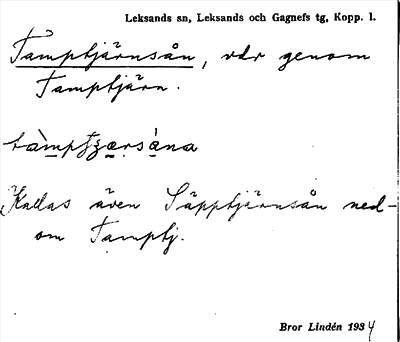 Leksands sn, Leksands och Gagnefs tg, Kopp. l.
Tamptjärnsån, vdr genom
Tamptjärn.
Kallas även Säpptjärnsån ned-
om Tamptj.
Bror Lindén 1934